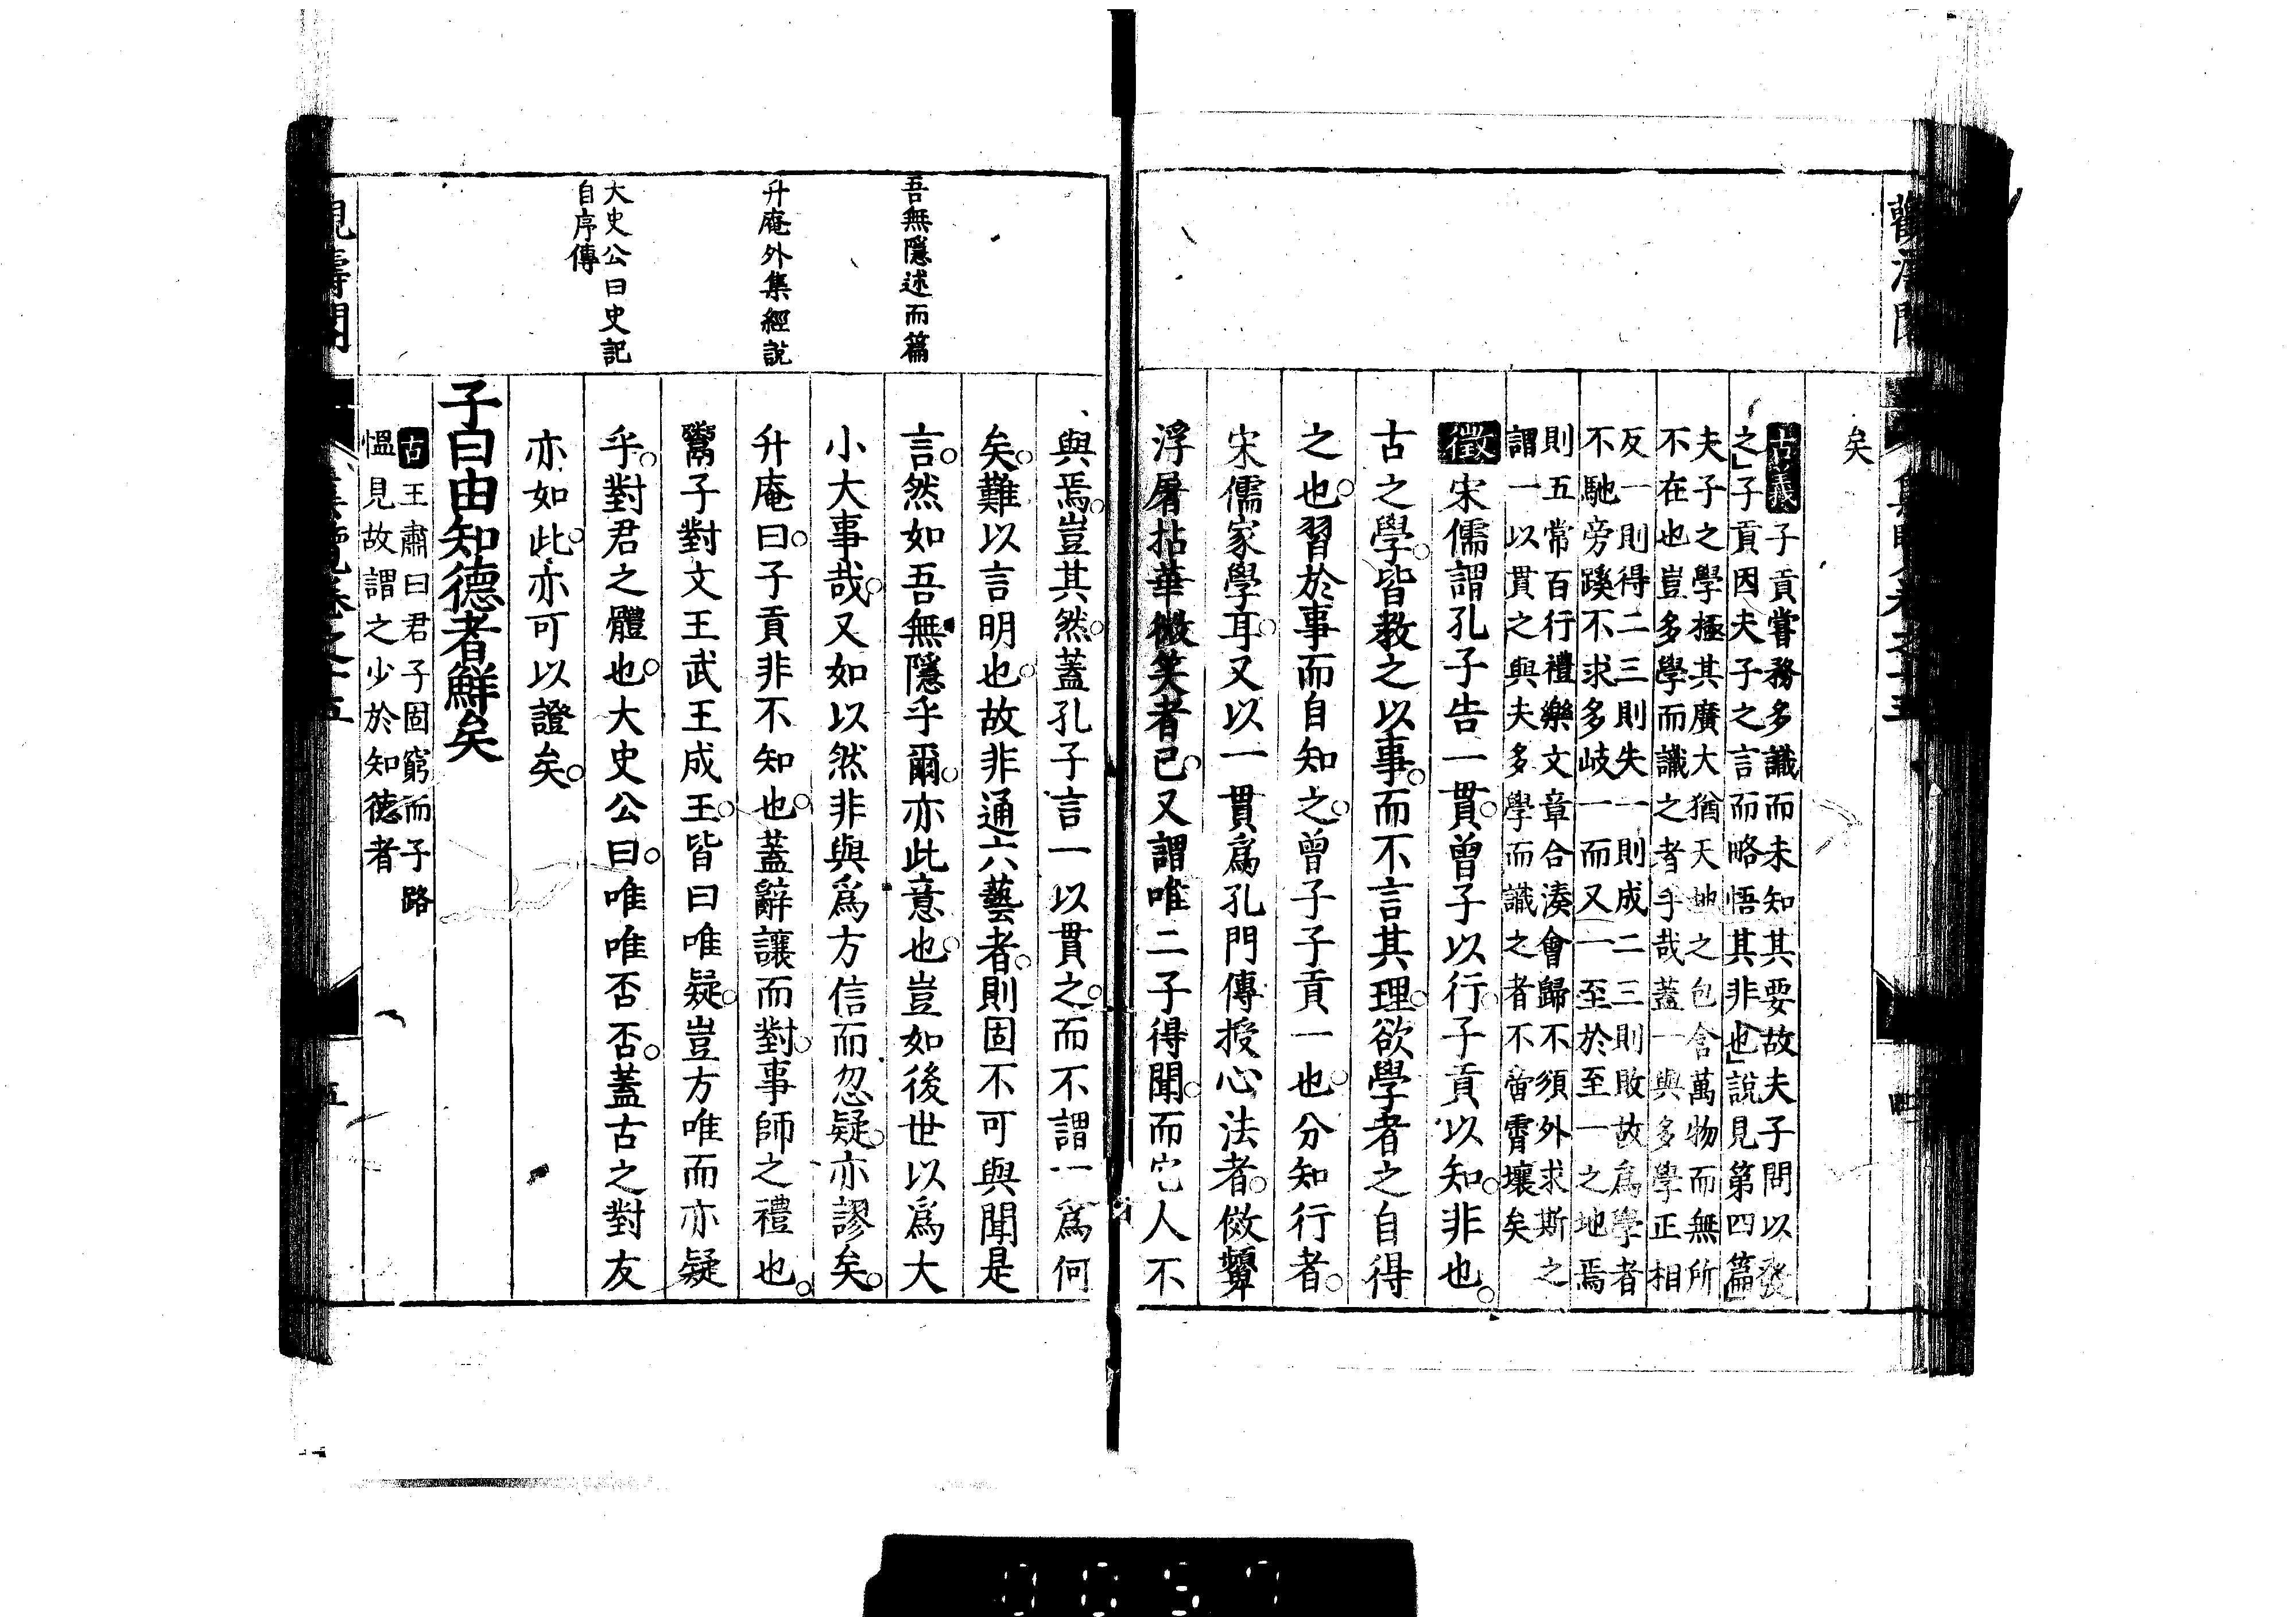 矣
古義子貢嘗務多識而未知其要故夫子問以發
之子貢因夫子之言而略悟其非也說見第四篇
夫子之學極其廣大猶天地之包含萬物而無所
不在也豈多學而識之者乎哉蓋一與多學正相
反一則得二三則失一則成二三則敗故爲學者
不馳旁蹊不求多岐一而又一至於至一之地焉
則五常百行禮樂文章合湊會歸不須外求斯之
謂一以貫之與夫多學而識之者不啻霄壤矣
徵宋儒謂孔子告一貫曾子以行子貢以知非也
古之學皆教之以事而不言其理欲學者之自得
之也習於事而自知之曾子子貢一也分知行者
宋儒家學耳又以一貫爲孔門傳授心法者傚顰
浮屠拈華微笑者已又謂唯二子得聞而它人不
吾無隱述而篇
升庵外集經說
大史公曰史記
自序傳
與焉豈其然蓋孔子言一以貫之而不謂一爲何
矣難以言明也故非通六藝者則固不可與聞是
言然如吾無隱乎爾亦此意也豈如後世以爲大
小大事哉又如以然非與爲方信而忽疑亦謬矣
升庵曰子貢非不知也蓋辭讓而對事師之禮也
鬻子對文王武王成王皆曰唯疑豈方唯而亦疑
乎對君之體也大史公曰唯唯否否蓋古之對友
亦如此亦可以證矣
子曰由知德者鮮矣
古王肅曰君子固窮而子路
慍見故謂之少於知德者